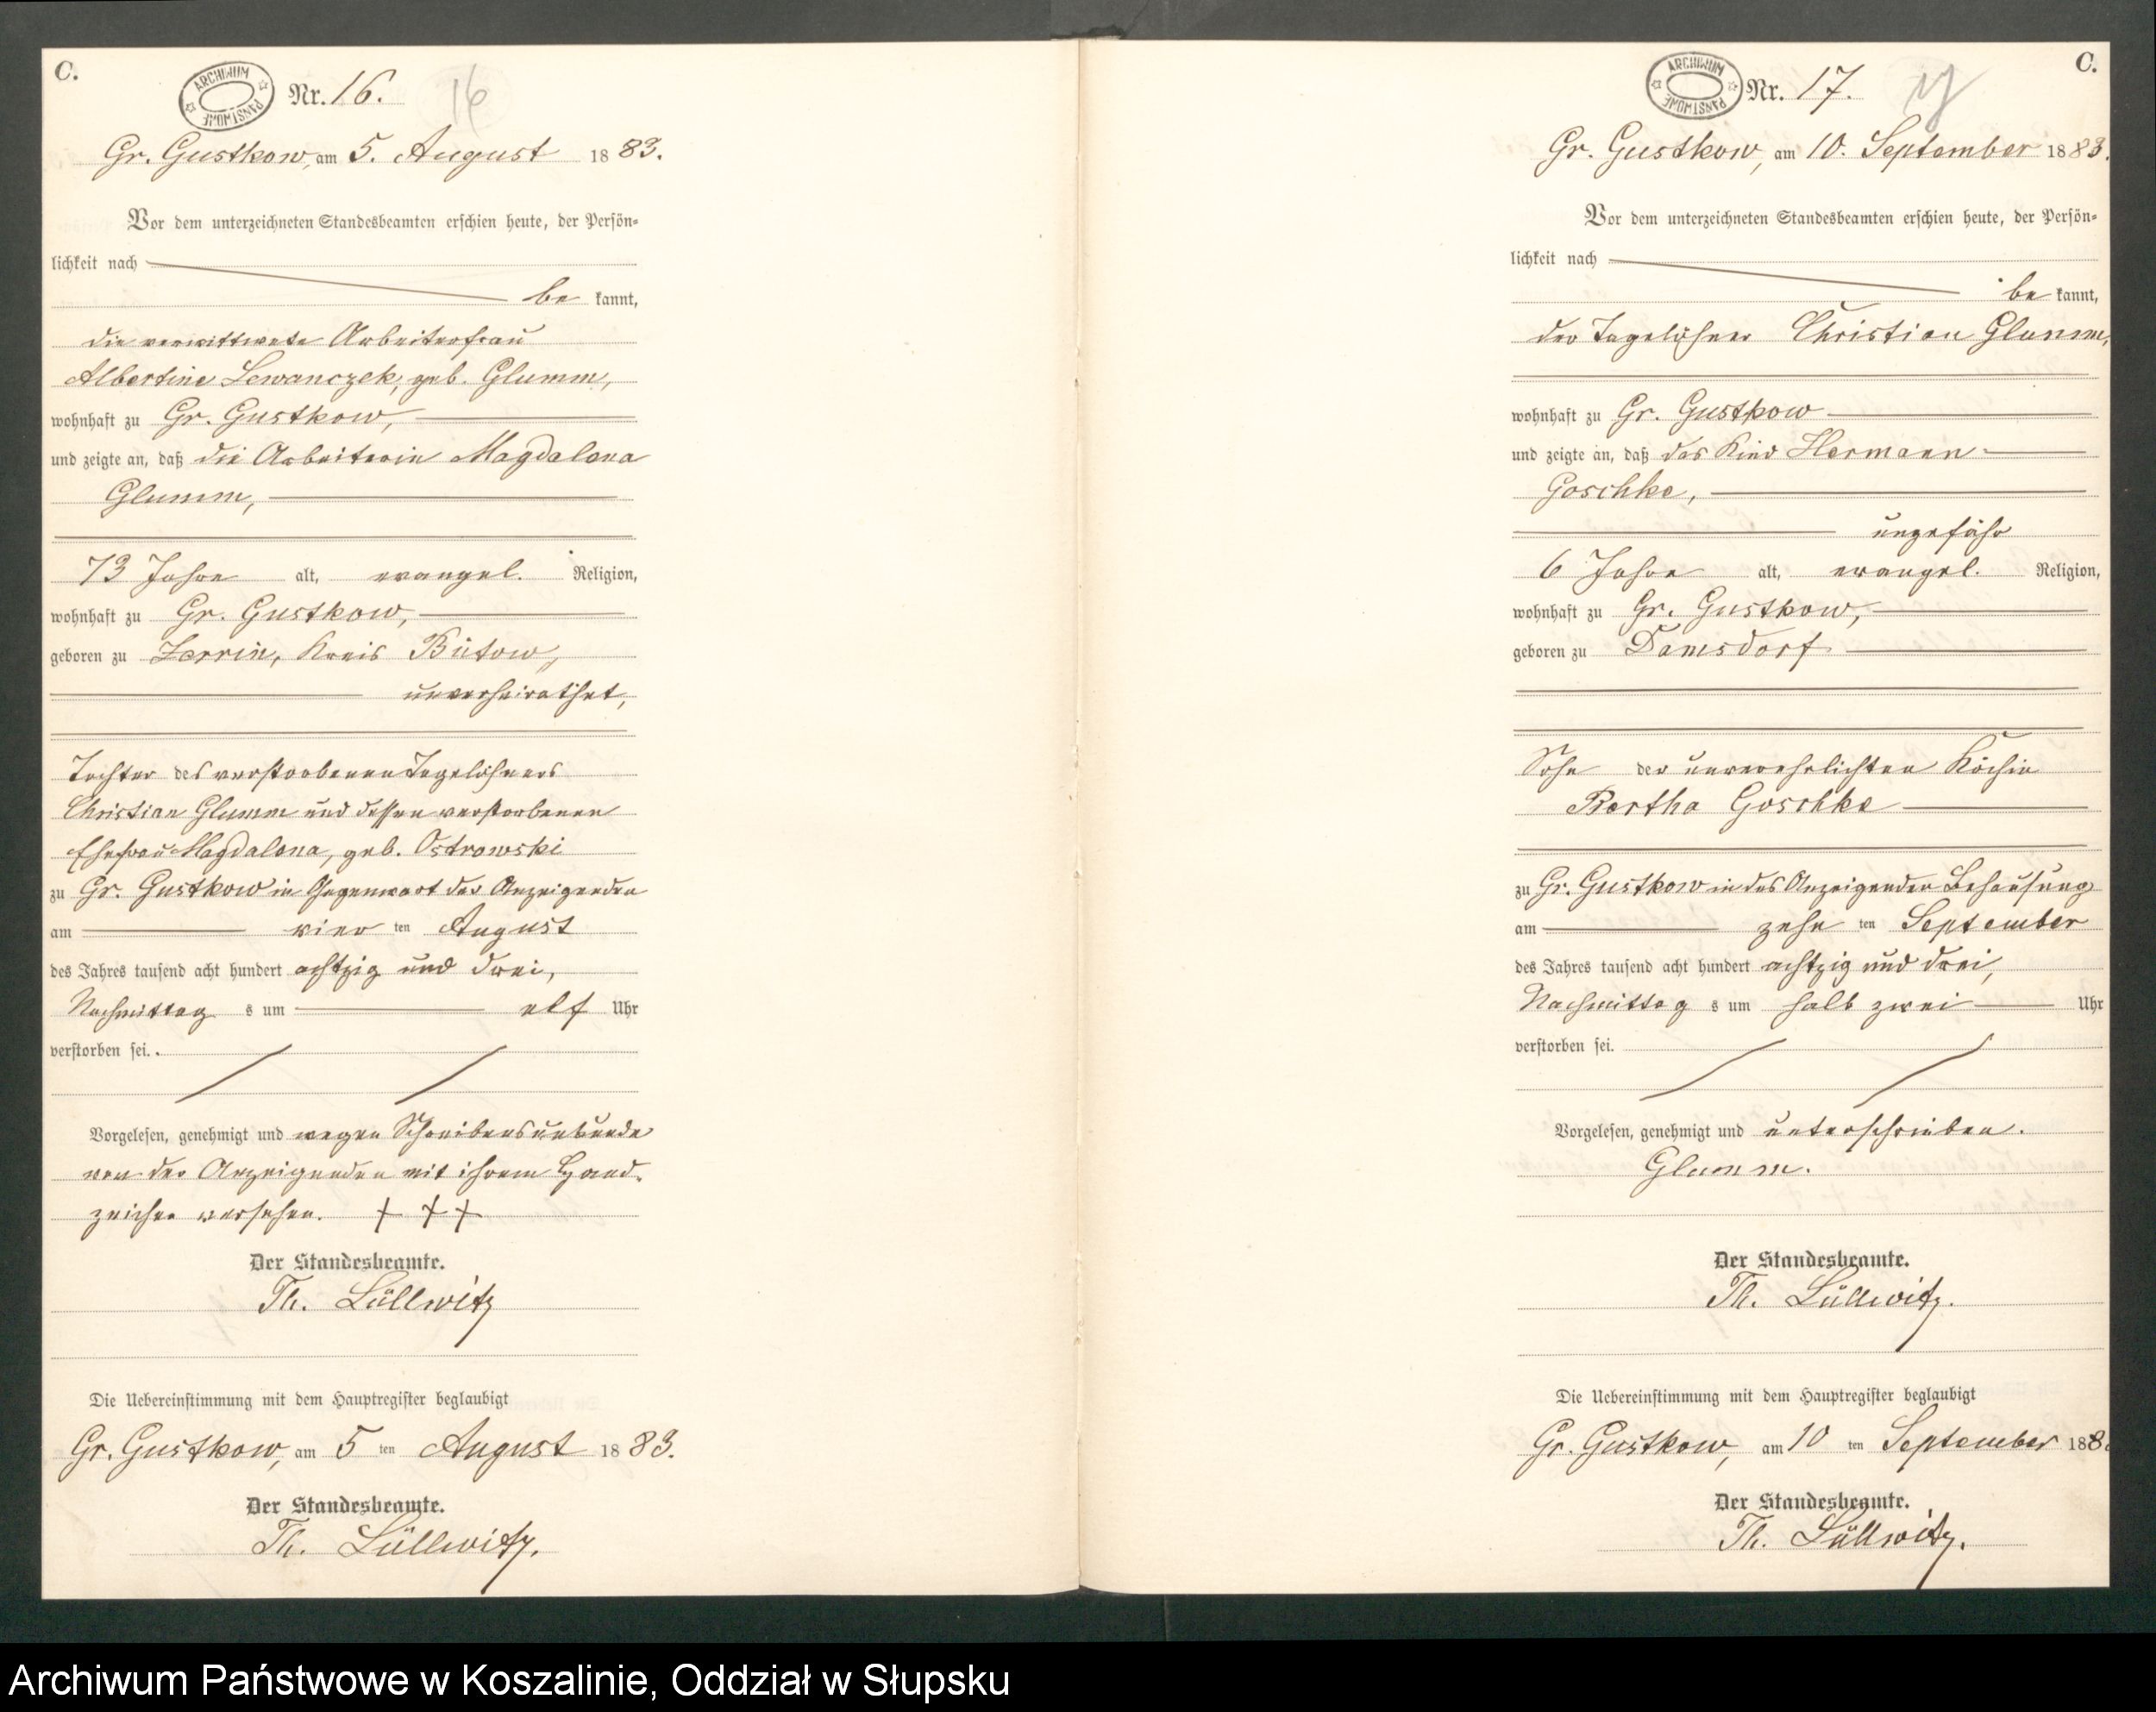 C.
ARCHIWUM PAŃSTWOWE
Nr. 16.
16
Gr. Gustkow, am 5. August 1883.
Vor dem unterzeichneten Standesbeamten erschien heute, der Persön-
lichkeit nach
be kannt,
die verwittwete Arbeiterfrau
Albertine Lewanczek, geb. Glumm,
wohnhaft zu Gr. Gustkow,
und zeigte an, daß die Arbeiterin Magdalena
Glumm,
73 Jahre alt, evangel. Religion,
wohnhaft zu Gr. Gustkow,
geboren zu Zerrin, Kreis Bütow,
unverheirathet,
Tochter des verstorbenen Tagelöhners
Christian Glumm und dessen verstorbenen
Ehefrau Magdalena, geb. Ostrowski
zu Gr. Gustkow in Gegenwart der Anzeigenden
am vier ten August
des Jahres tausend acht hundert achtzig und drei,
Nachmittag s um elf Uhr
verstorben sei.
Vorgelesen, genehmigt und wegen Schreibensunkunde
von der Anzeigenden mit ihrem Hand-
zeichen versehen. + + +
Der Standesbeamte.
Th. Lüllwitz
Die Uebereinstimmung mit dem Hauptregister beglaubigt
Gr. Gustkow, am 5 ten August 1883.
Der Standesbeamte.
Th. Lüllwitz.
C.
ARCHIWUM PAŃSTWOWE
Nr. 17.
17
Gr. Gustkow, am 10. September 1883.
Vor dem unterzeichneten Standesbeamten erschien heute, der Persön-
lichkeit nach
be kannt,
der Tagelöhner Christian Glumm,
wohnhaft zu Gr. Gustkow
und zeigte an, daß das Kind Hermann
Goschke,
ungefähr
6 Jahre alt, evangel. Religion,
wohnhaft zu Gr. Gustkow,
geboren zu Damsdorf
Sohn der unverehelichten Köchin
Bertha Goschke
zu Gr. Gustkow in des Anzeigenden Behausung
am zehn ten September
des Jahres tausend acht hundert achtzig und drei,
Nachmittag s um halb zwei Uhr
verstorben sei.
Vorgelesen, genehmigt und unterschrieben.
Glumm.
Der Standesbeamte.
Th. Lüllwitz.
Die Uebereinstimmung mit dem Hauptregister beglaubigt
Gr. Gustkow, am 10 ten September 188
Der Standesbeamte.
Th. Lüllwitz.
Archiwum Państwowe w Koszalinie, Oddział w Słupsku